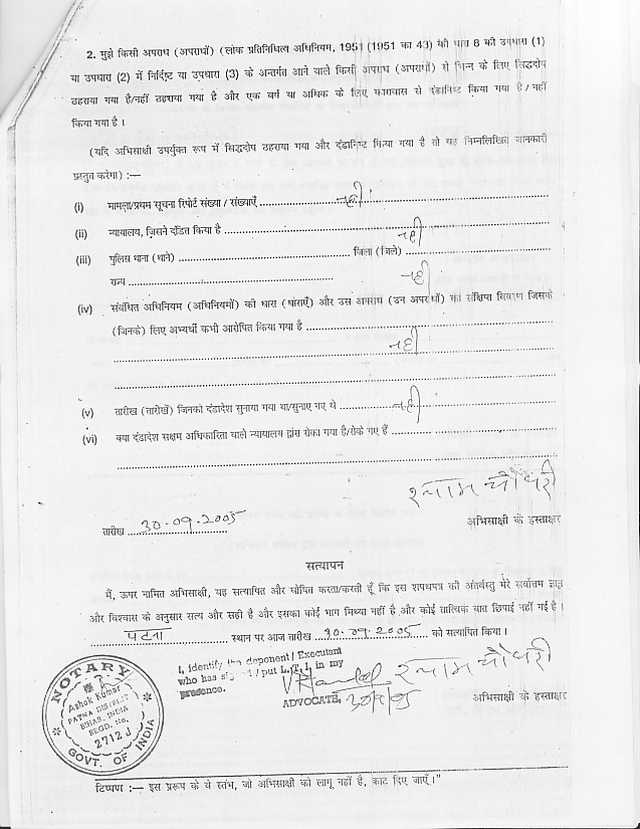 2. मुझे किसी अपराध (अपराधों) (लोक प्रतिनिधित्व अधिनियम, 1951 (1951 का 43) की धारा 8 की उपधारा (1)
या उपधारा (2) में निर्दिष्ट या उपधारा (3) के अन्तर्गत आने वाले किसी अपराध (अपराधों) से भिन्न के लिए सिद्धदोष
ठहराया गया है/नहीं ठहराया गया है और एक वर्ष या अधिक के लिए कारावास से दंडादिष्ट किया गया है / नहीं
किया गया है ।
(यदि अभिसाक्षी उपर्युक्त रूप में सिद्धदोष ठहराया गया और दंडादिष्ट किया गया है तो वह निम्नलिखित जानकारी
प्रस्तुत करेगा) :—
(i) मामला/प्रथम सूचना रिपोर्ट संख्या / संख्याएँ नहीं
(ii) न्यायालय, जिसने दंडित किया है नहीं
(iii) पुलिस थाना (थाने) जिला (जिले)
राज्य नहीं
(iv) संबंधित अधिनियम (अधिनियमों) की धारा (धाराएँ) और उस अपराध (उन अपराधों) का संक्षिप्त विवरण जिसके
(जिनके) लिए अभ्यर्थी कभी आरोपित किया गया है
नहीं
(v) तारीख (तारीखें) जिनको दंडादेश सुनाया गया था/सुनाए गए थे नहीं
(vi) क्या दंडादेश सक्षम अधिकारिता वाले न्यायालय द्वारा रोका गया है/रोके गए हैं
श्याम चौधरी
तारीख 30.09.2005 अभिसाक्षी के हस्ताक्षर
सत्यापन
मैं, ऊपर नामित अभिसाक्षी, यह सत्यापित और घोषित करता/करती हूँ कि इस शपथपत्र की अंतर्वस्तु मेरे सर्वोत्तम ज्ञान
और विश्वास के अनुसार सत्य और सही है और इसका कोई भाग मिथ्या नहीं है और कोई तात्विक बात छिपाई नहीं गई है ।
पटना स्थान पर आज तारीख 30.09.2005 को सत्यापित किया ।
I, identify the deponent / Executant
who has signed / put L.T.I. in my
presence.
श्याम चौधरी
ADVOCATE
अभिसाक्षी के हस्ताक्षर
NOTARY
Ashok Kumar
PATNA DISTRICT
BIHAR, INDIA
REGD. No.
2712 J
GOVT. OF INDIA
टिप्पण :— इस प्ररूप के ये स्तंभ, जो अभिसाक्षी को लागू नहीं है, काट दिए जाएँ।"